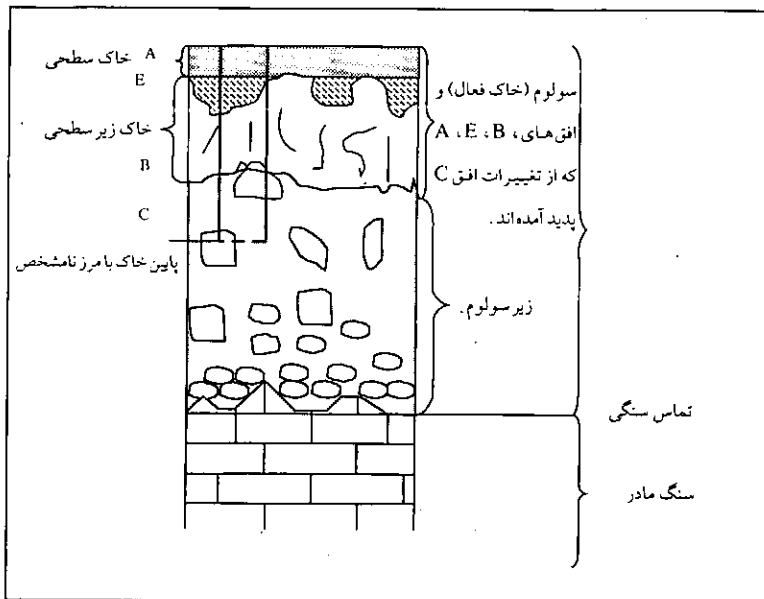 A خاک سطحی
E
خاک زیر سطحی
B
C
پایین خاک با مرز نامشخص
سولوم (خاک فعال) و
افق‌های، A ، E ، B
که از تغییرات افق C
پدید آمده‌اند.
زیر سولوم.
تماس سنگی
سنگ مادر